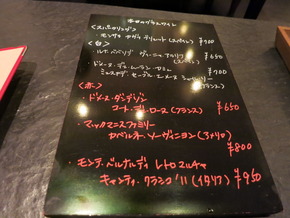 本日のグラスワイン
<スパークリング>
モンサラ カヴァ ブリュット (スペイン) ¥700
<白>
ルナ・ベベリデ ヴィーニョ
(スペイン) ¥650
・ドメーヌ・デュ・
ミュスカデ・セーヴル・エ・メーヌ シュール・リー
(フランス) ¥700
<赤>
・ドメーヌ・ダンデゾン
コート・デュ・ローヌ (フランス) ¥650
・マックマニスファミリー
カベルネ・ソーヴィニヨン (アメリカ)
¥800
・モンテ・ベルナルディ レトロマルチャ
キャンティ・クラシコ '11 (イタリア) ¥950